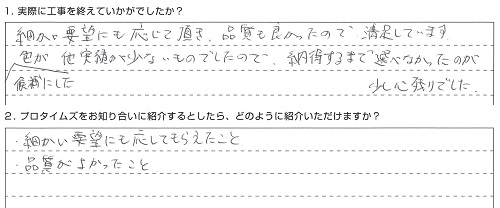 1. 実際に工事を終えていかがでしたか?
細かい要望にも応じて頂き、品質も良かったので、満足しています
色が他実績が少ないものでしたので、納得するまで選べなかったのが
候補にした
少し心残りでした。
2. プロタイムズをお知り合いに紹介するとしたら、どのように紹介いただけますか?
・細かい要望にも応じてもらえたこと
・品質がよかったこと